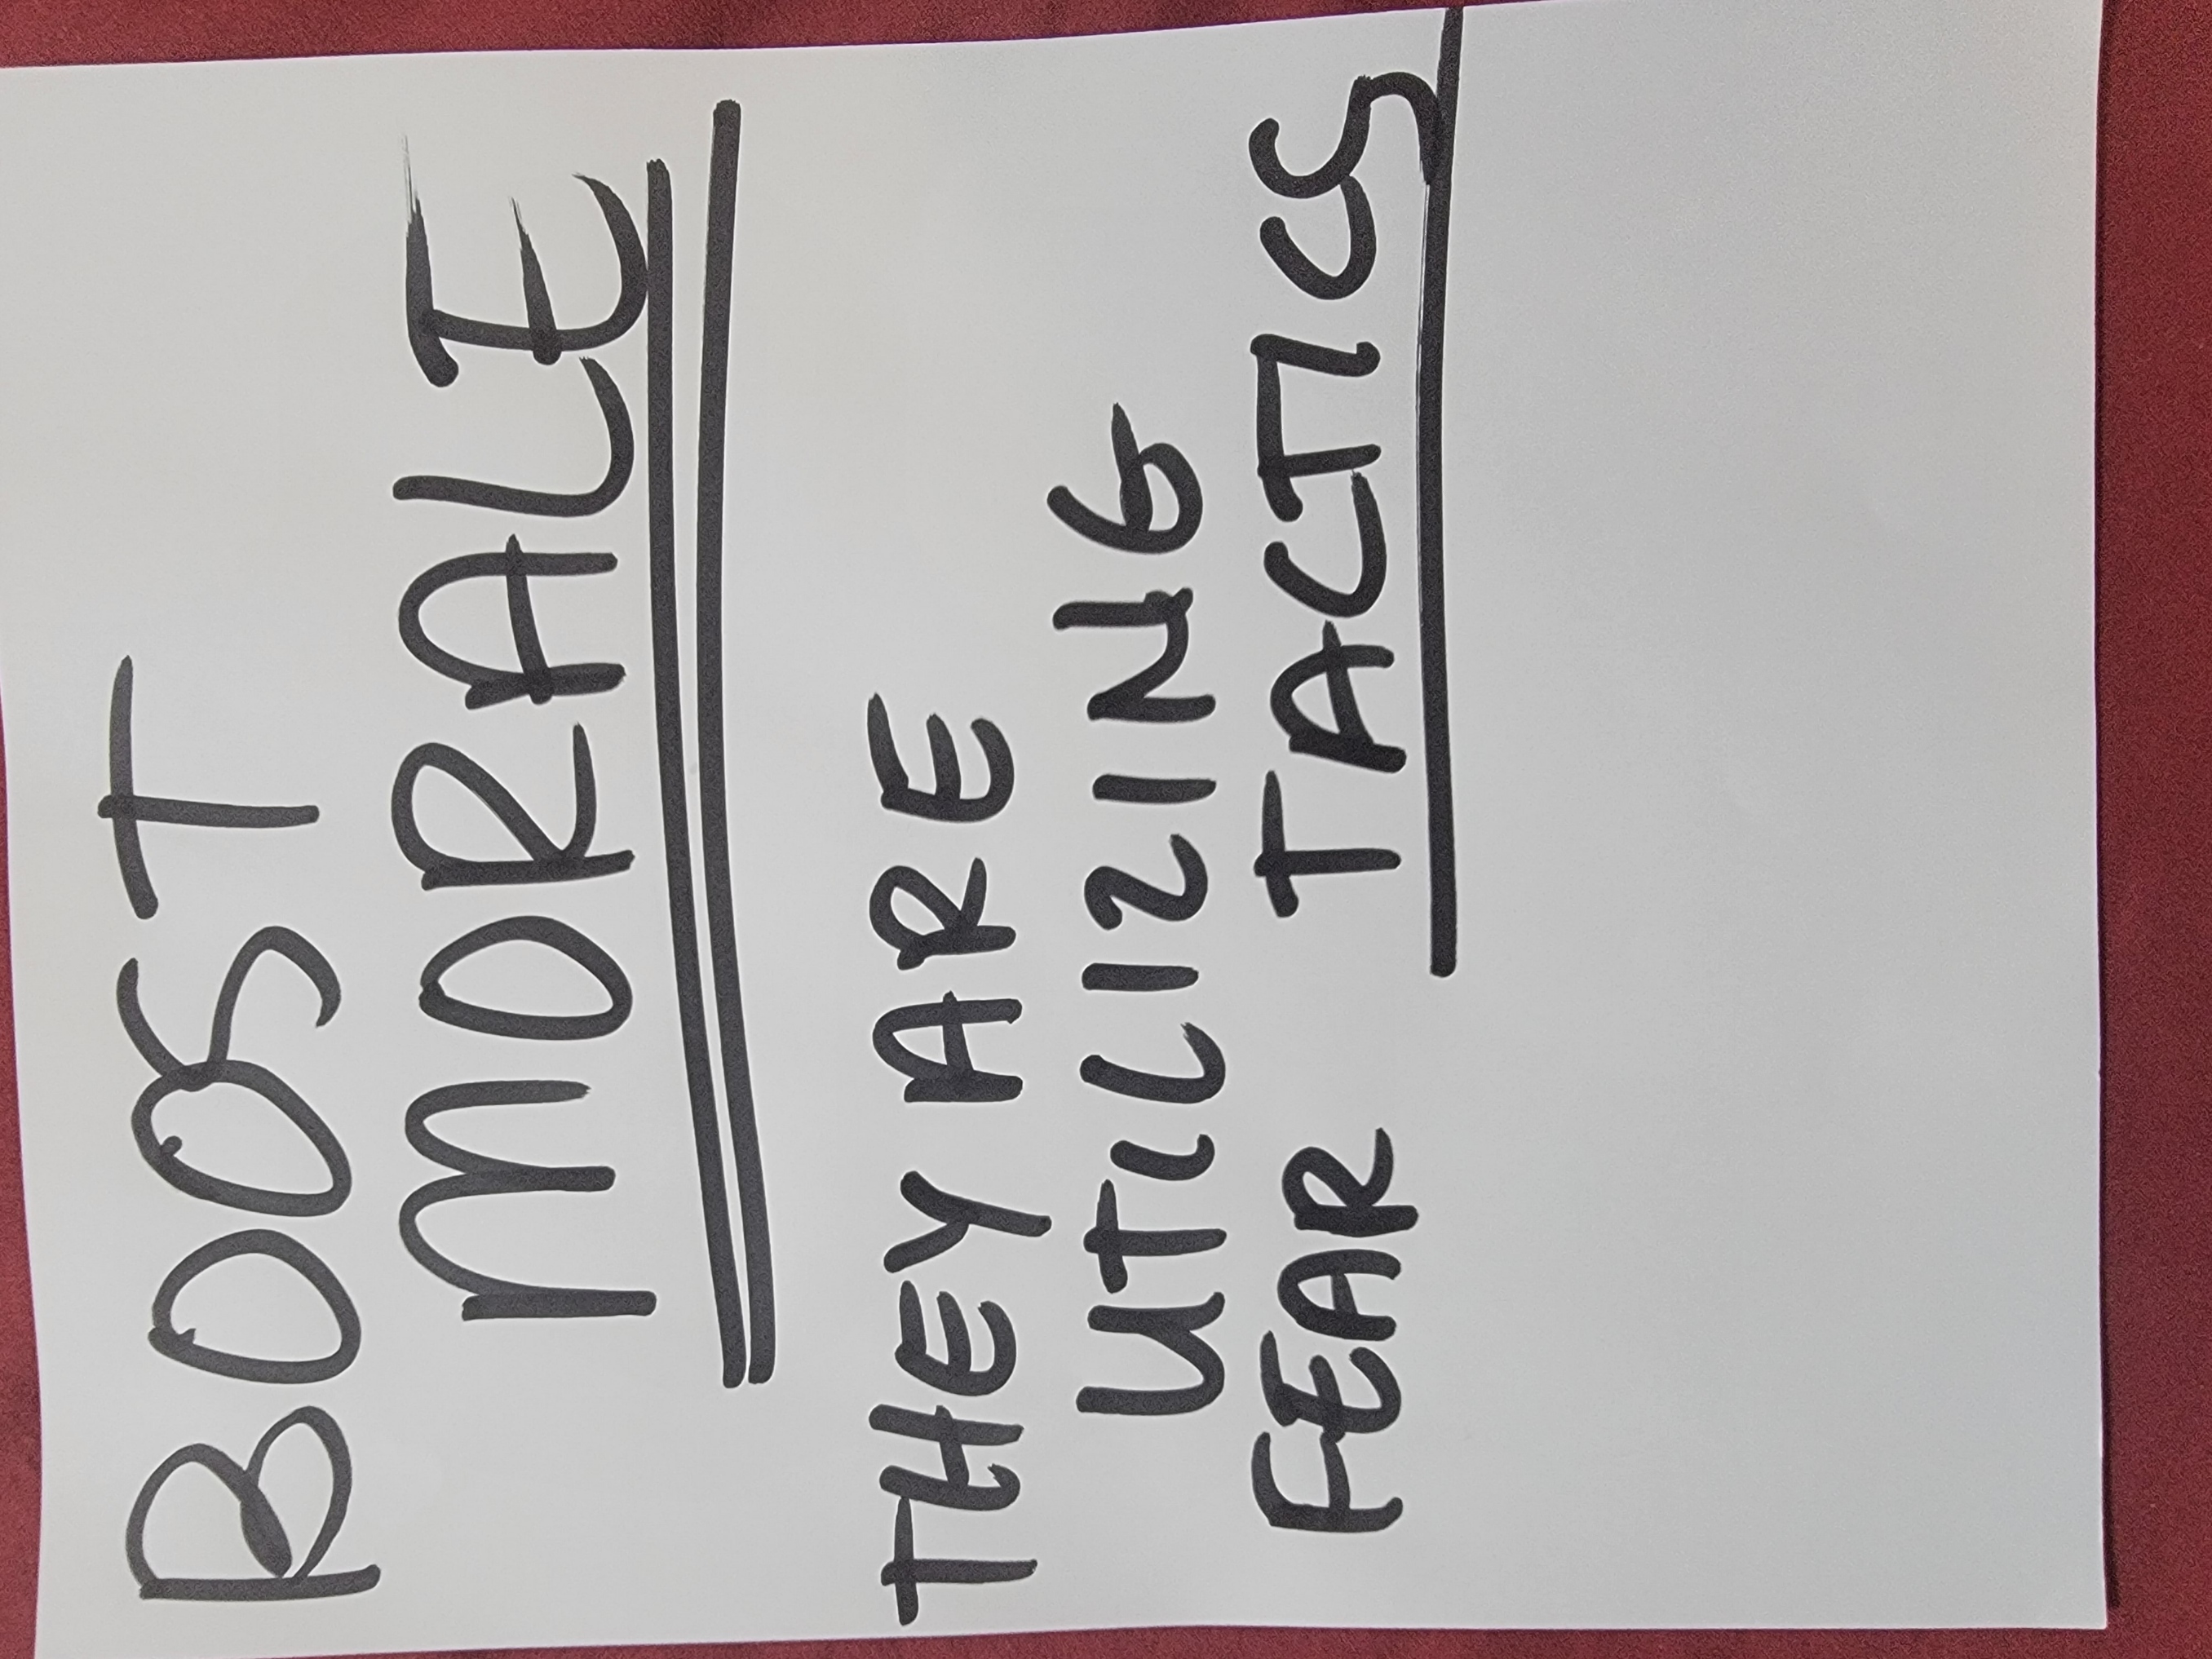 BOOST
MORALE
THEY ARE
UTILIZING
FEAR TACTICS